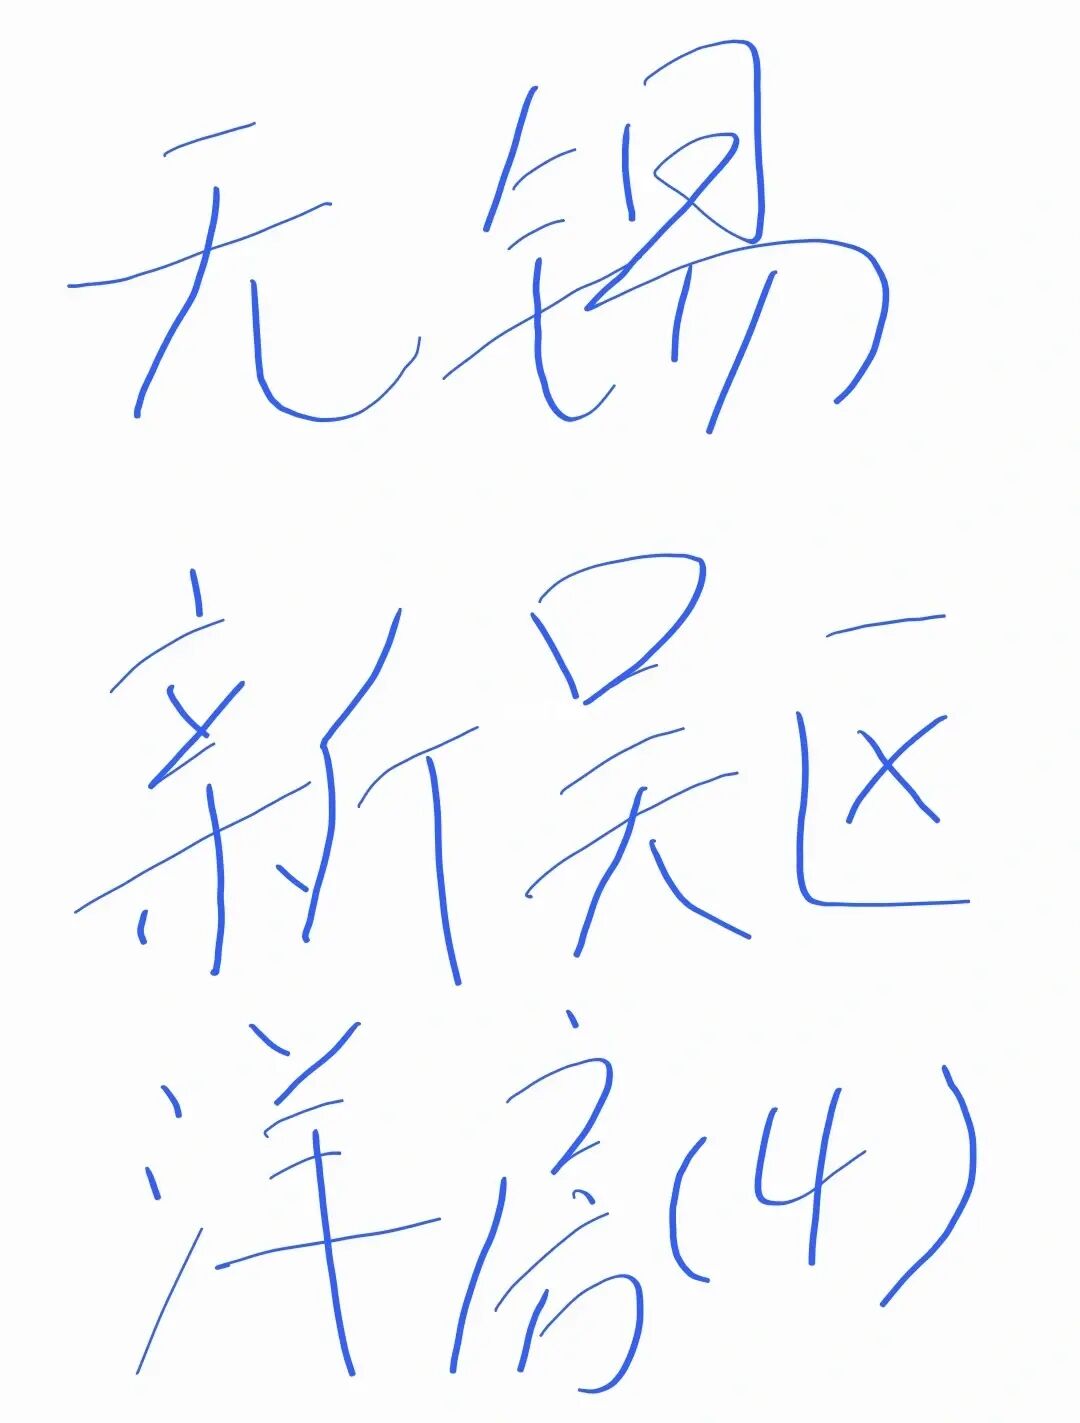 无锡
新吴区
洋房(4)